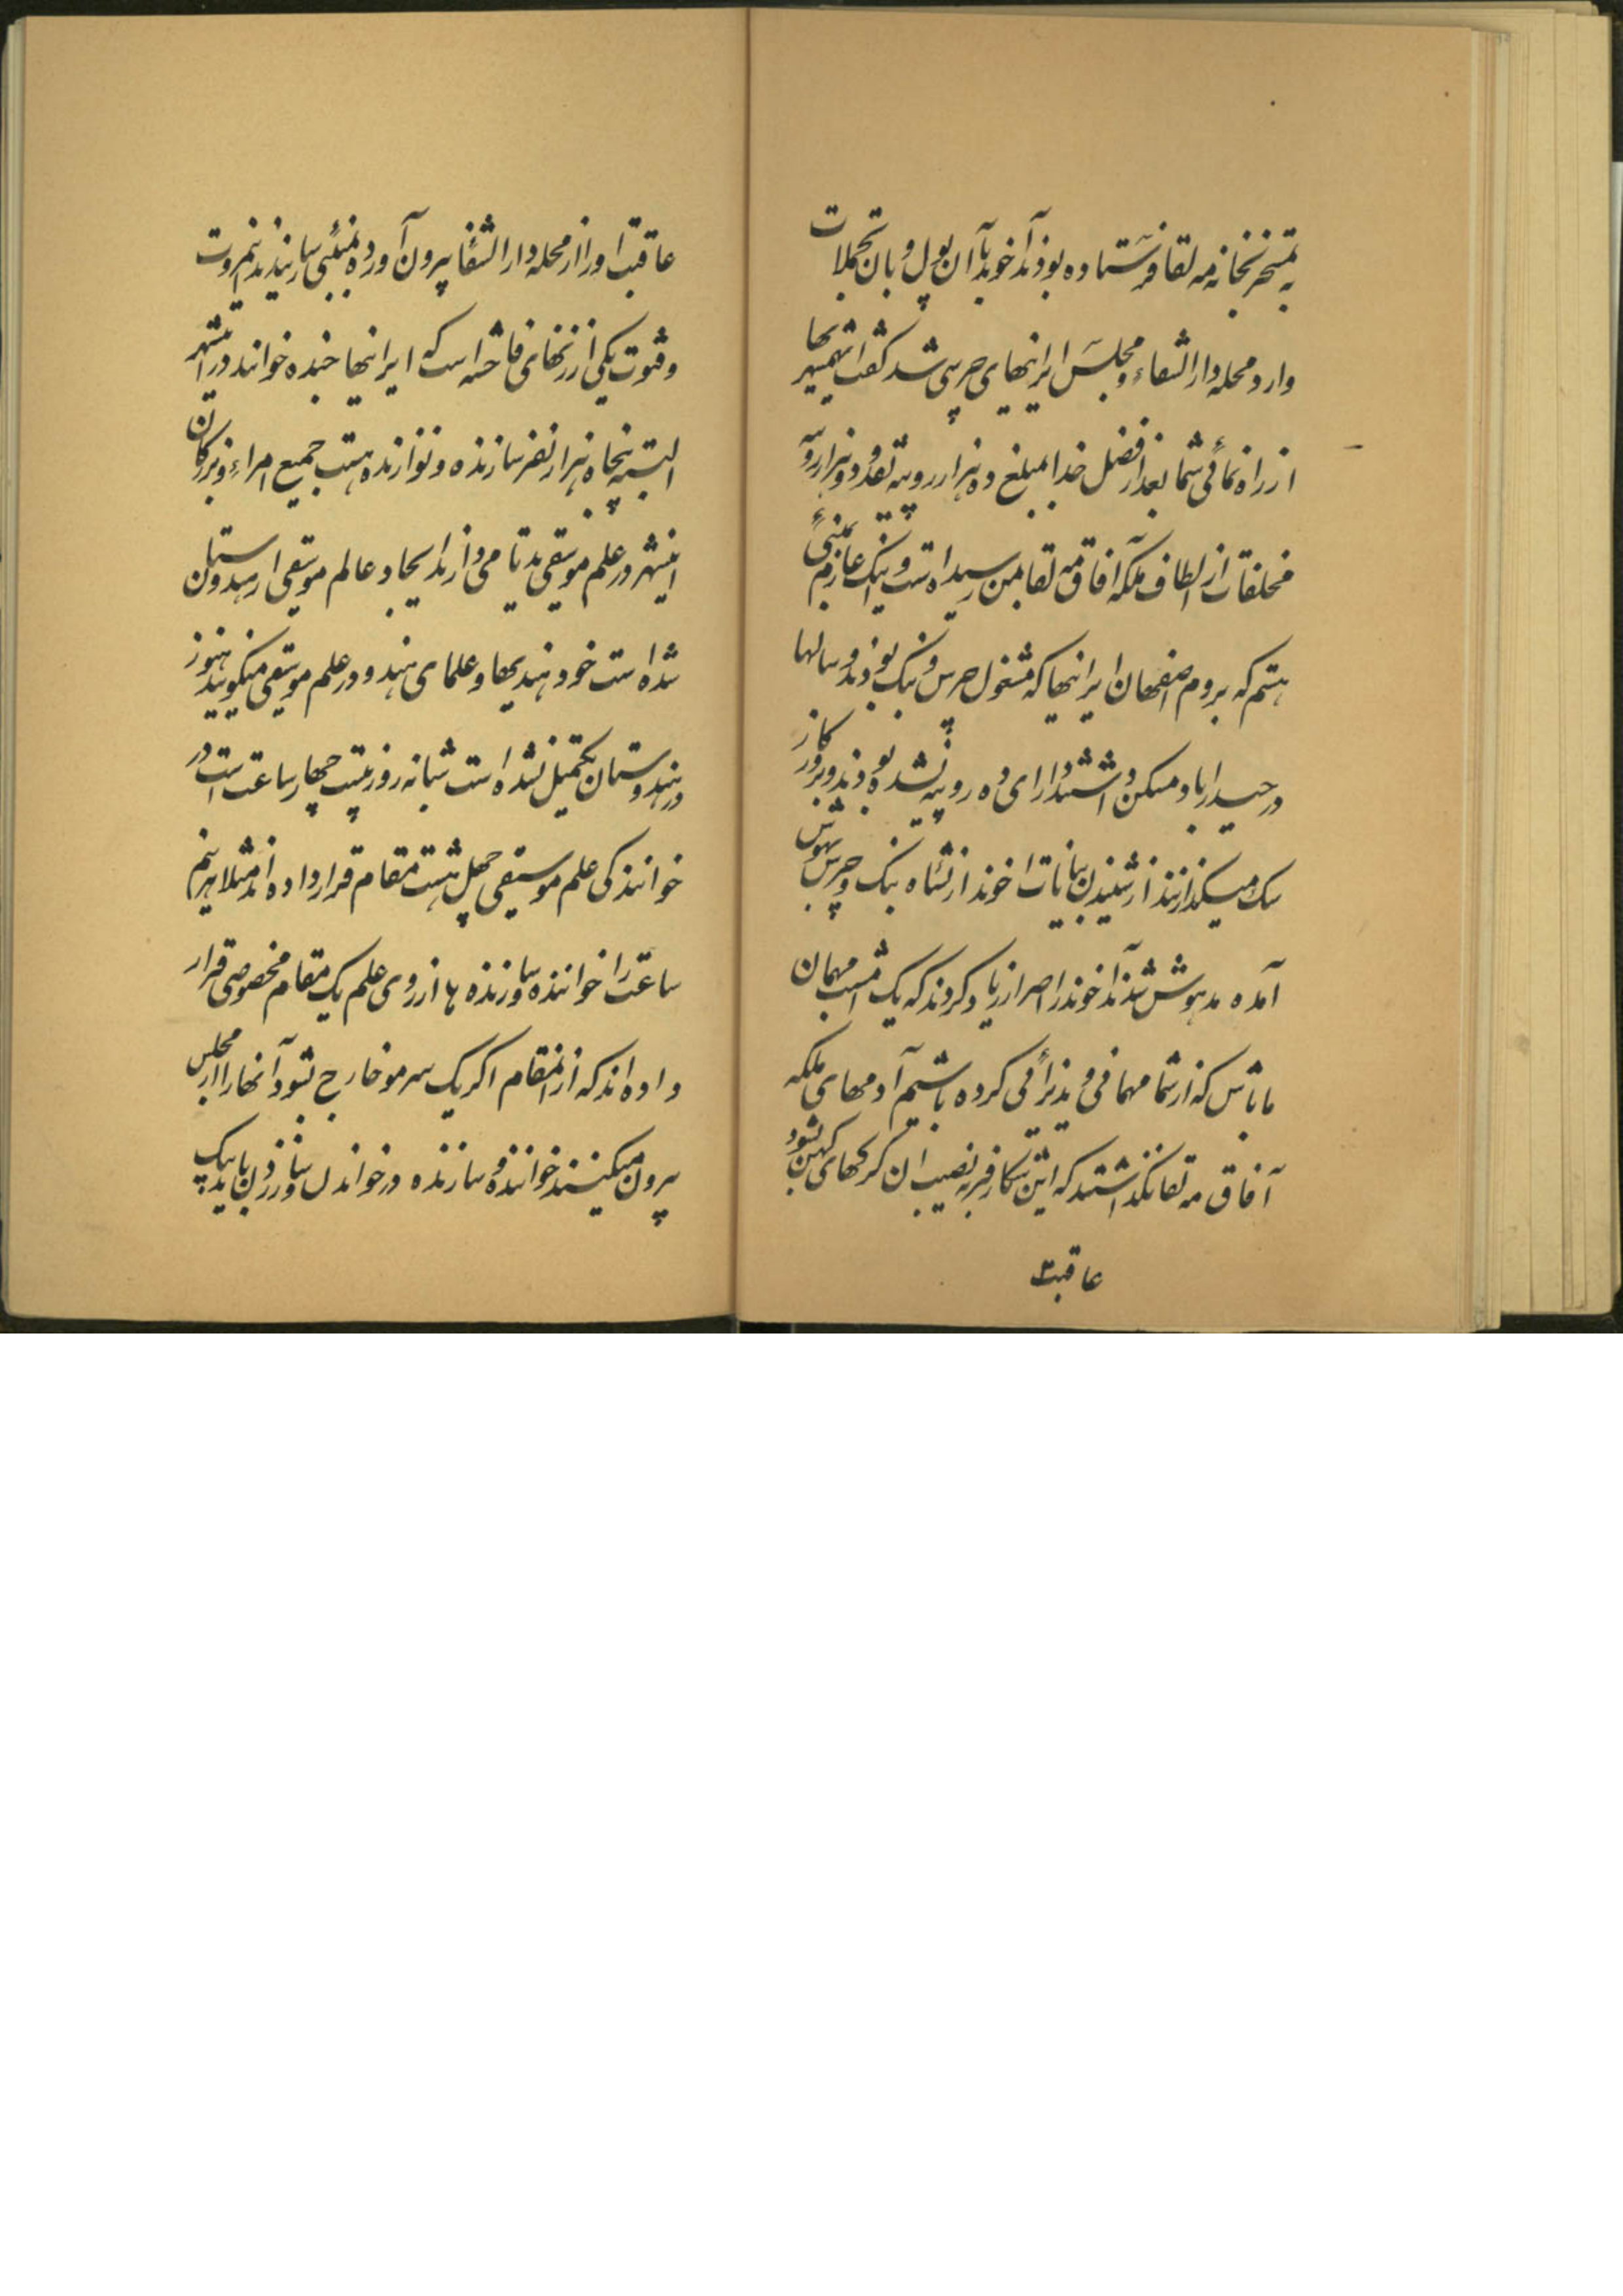 به تمسخر بخانه مه لقا فرستاده بودند آخوند با آن پول و بان تجملات
وارد محله دار الشفاء و مجلس ایرانیهای چرسی شد گفت ای همشهریها
از راه نمائی شما بعد از فضل خدا مبلغ ده هزار روپیه نقد و دو هزار روپیه
مخلفات از الطاف ملکه آفاق مه لقا بمن رسیده است و اینک عازم بمبئی
هستم که بروم اصفهان ایرانیها که مشغول چرس و بنگ بودند و سالها
در حیدراباد مسکن داشتند و دارای ده روپیه نشده بودند و بروز کار
سگ میگذرانند از شنیدن بیانات اخوند از نشاه بنگ و چرس بهوش
آمده مدهوش شدند آخوند را اصرار زیاد کردند که یک امشب مهمان
ما باش که از شما مهمانی و پذیرائی کرده باشیم آدمهای ملکه
آفاق مه لقا نگذاشتند که این شکار فربه نصیب ان گرگهای کهن بشود
عاقبت
عاقبت او را از محله دار الشفا بیرون آورده به بمبئی رسانیدند نیم مروت
و فتوت یکی از زنهای فاحشه است که ایرانیها جنده خوانند در اینشهر
البته پنجاه هزار نفر سازنده و نوازنده هست جمیع امراء و بزرکان
اینشهر در علم موسیقی ید تامی دارند ایجاد عالم موسیقی از هندوستان
شده است خود هندیها و علمای هندو در علم موسیقی میکویند هنوز
در هندوستان تکمیل نشده است شبانه روز بیست چهار ساعت است در
خوانندکی علم موسیقی چهل هشت مقام قرار داده اند مثلا هر نیم
ساعت را خواننده و سازنده ها از روی علم یک مقام مخصوصی قرار
داده اند که از انمقام اکر یک سر مو خارج بشود آنها را از مجلس
بیرون میکنند خواننده و سازنده در خواندن و ساز زدن باید یک